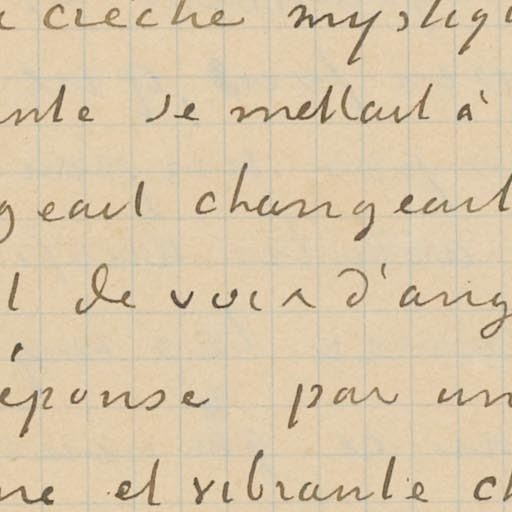 crèche mystiq
nte se mettait à
geait changeait
t de voix d'ang
éponse par un
ne et vibrante ch